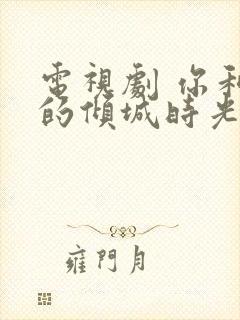 電視劇 你和
的傾城時光
雍門月